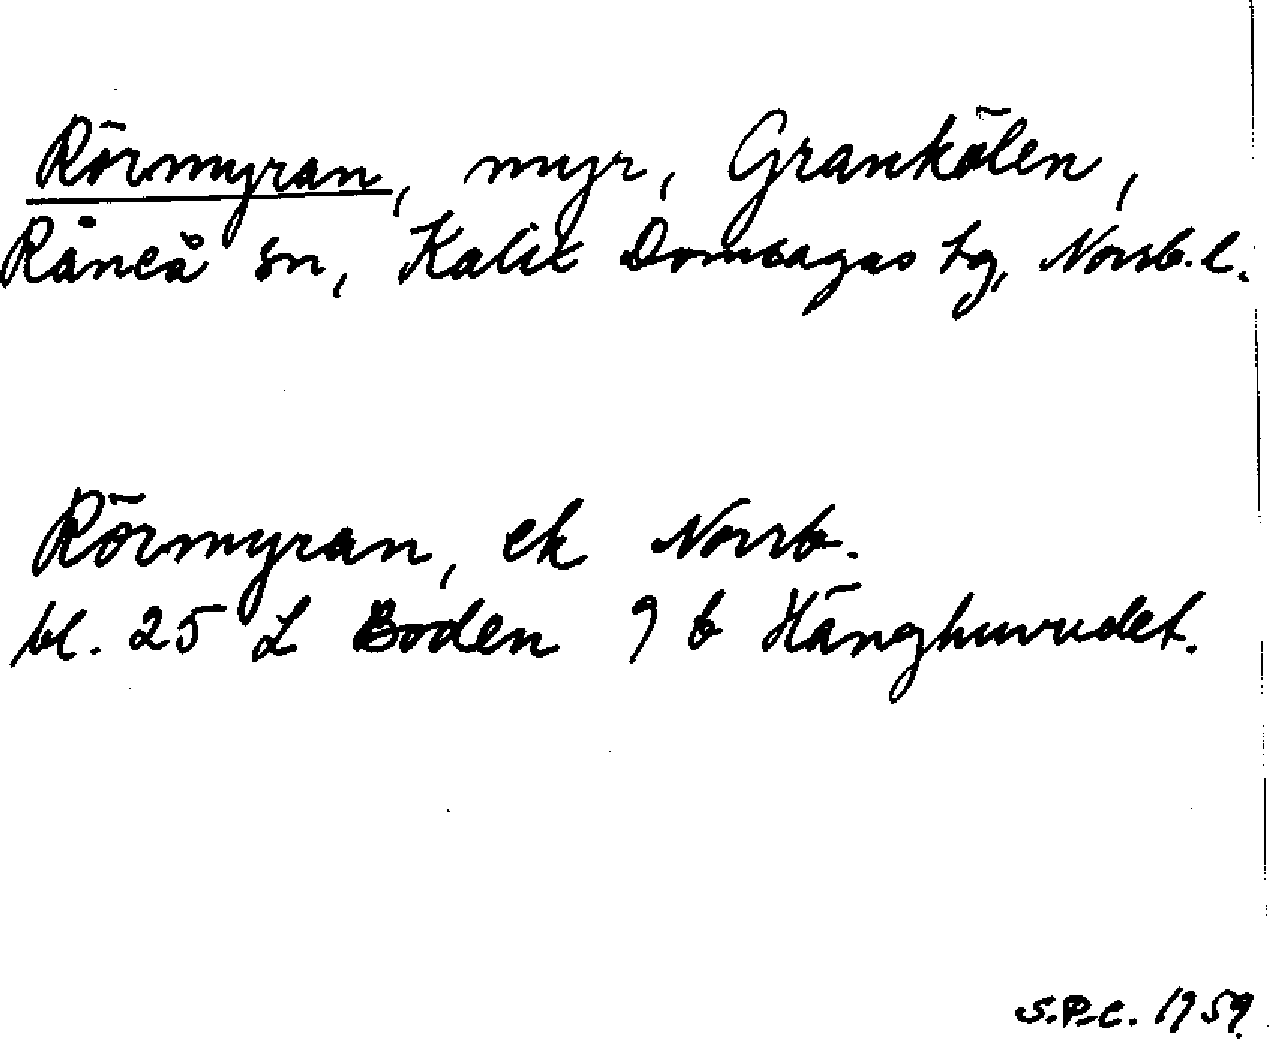 Rörmyran, myr, Grankölen,
Råneå sn, Kalix Domsagas tg, Norrb. l.
Rörmyran, ek Norrb.
bl. 25 L Boden 9 b Hänghuvudet.
S.P.C. 1959.